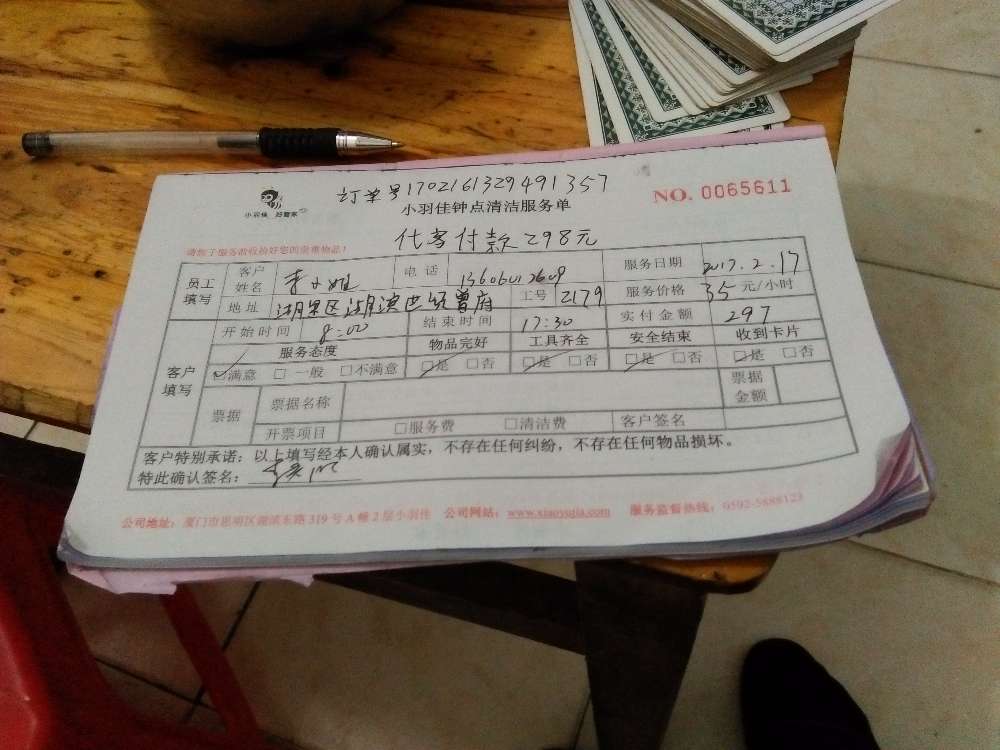 订单号170216132949 1357
小羽佳 好管家 小羽佳钟点清洁服务单 NO. 0065611
代客付款298元
请您于服务前收拾好您的贵重物品!
员工填写 客户姓名 李小姐 电话 服务日期 2017.2.17
地址 湖里区湖滨 工号 2179 服务价格 35 元/小时
客户填写 开始时间 8:00 结束时间 17:30 实付金额 297
服务态度 物品完好 工具齐全 安全结束 收到卡片
☑满意 □一般 □不满意 ☑是 □否 ☑是 □否 ☑是 □否 ☑是 □否
票据 票据名称 票据金额
开票项目 □服务费 □清洁费 客户签名
客户特别承诺:以上填写经本人确认属实,不存在任何纠纷,不存在任何物品损坏。
特此确认签名:
公司地址:厦门市思明区湖滨东路319号A幢2层小羽佳 公司网站:www.xiaoyujia.com 服务监督热线:0592-5888123